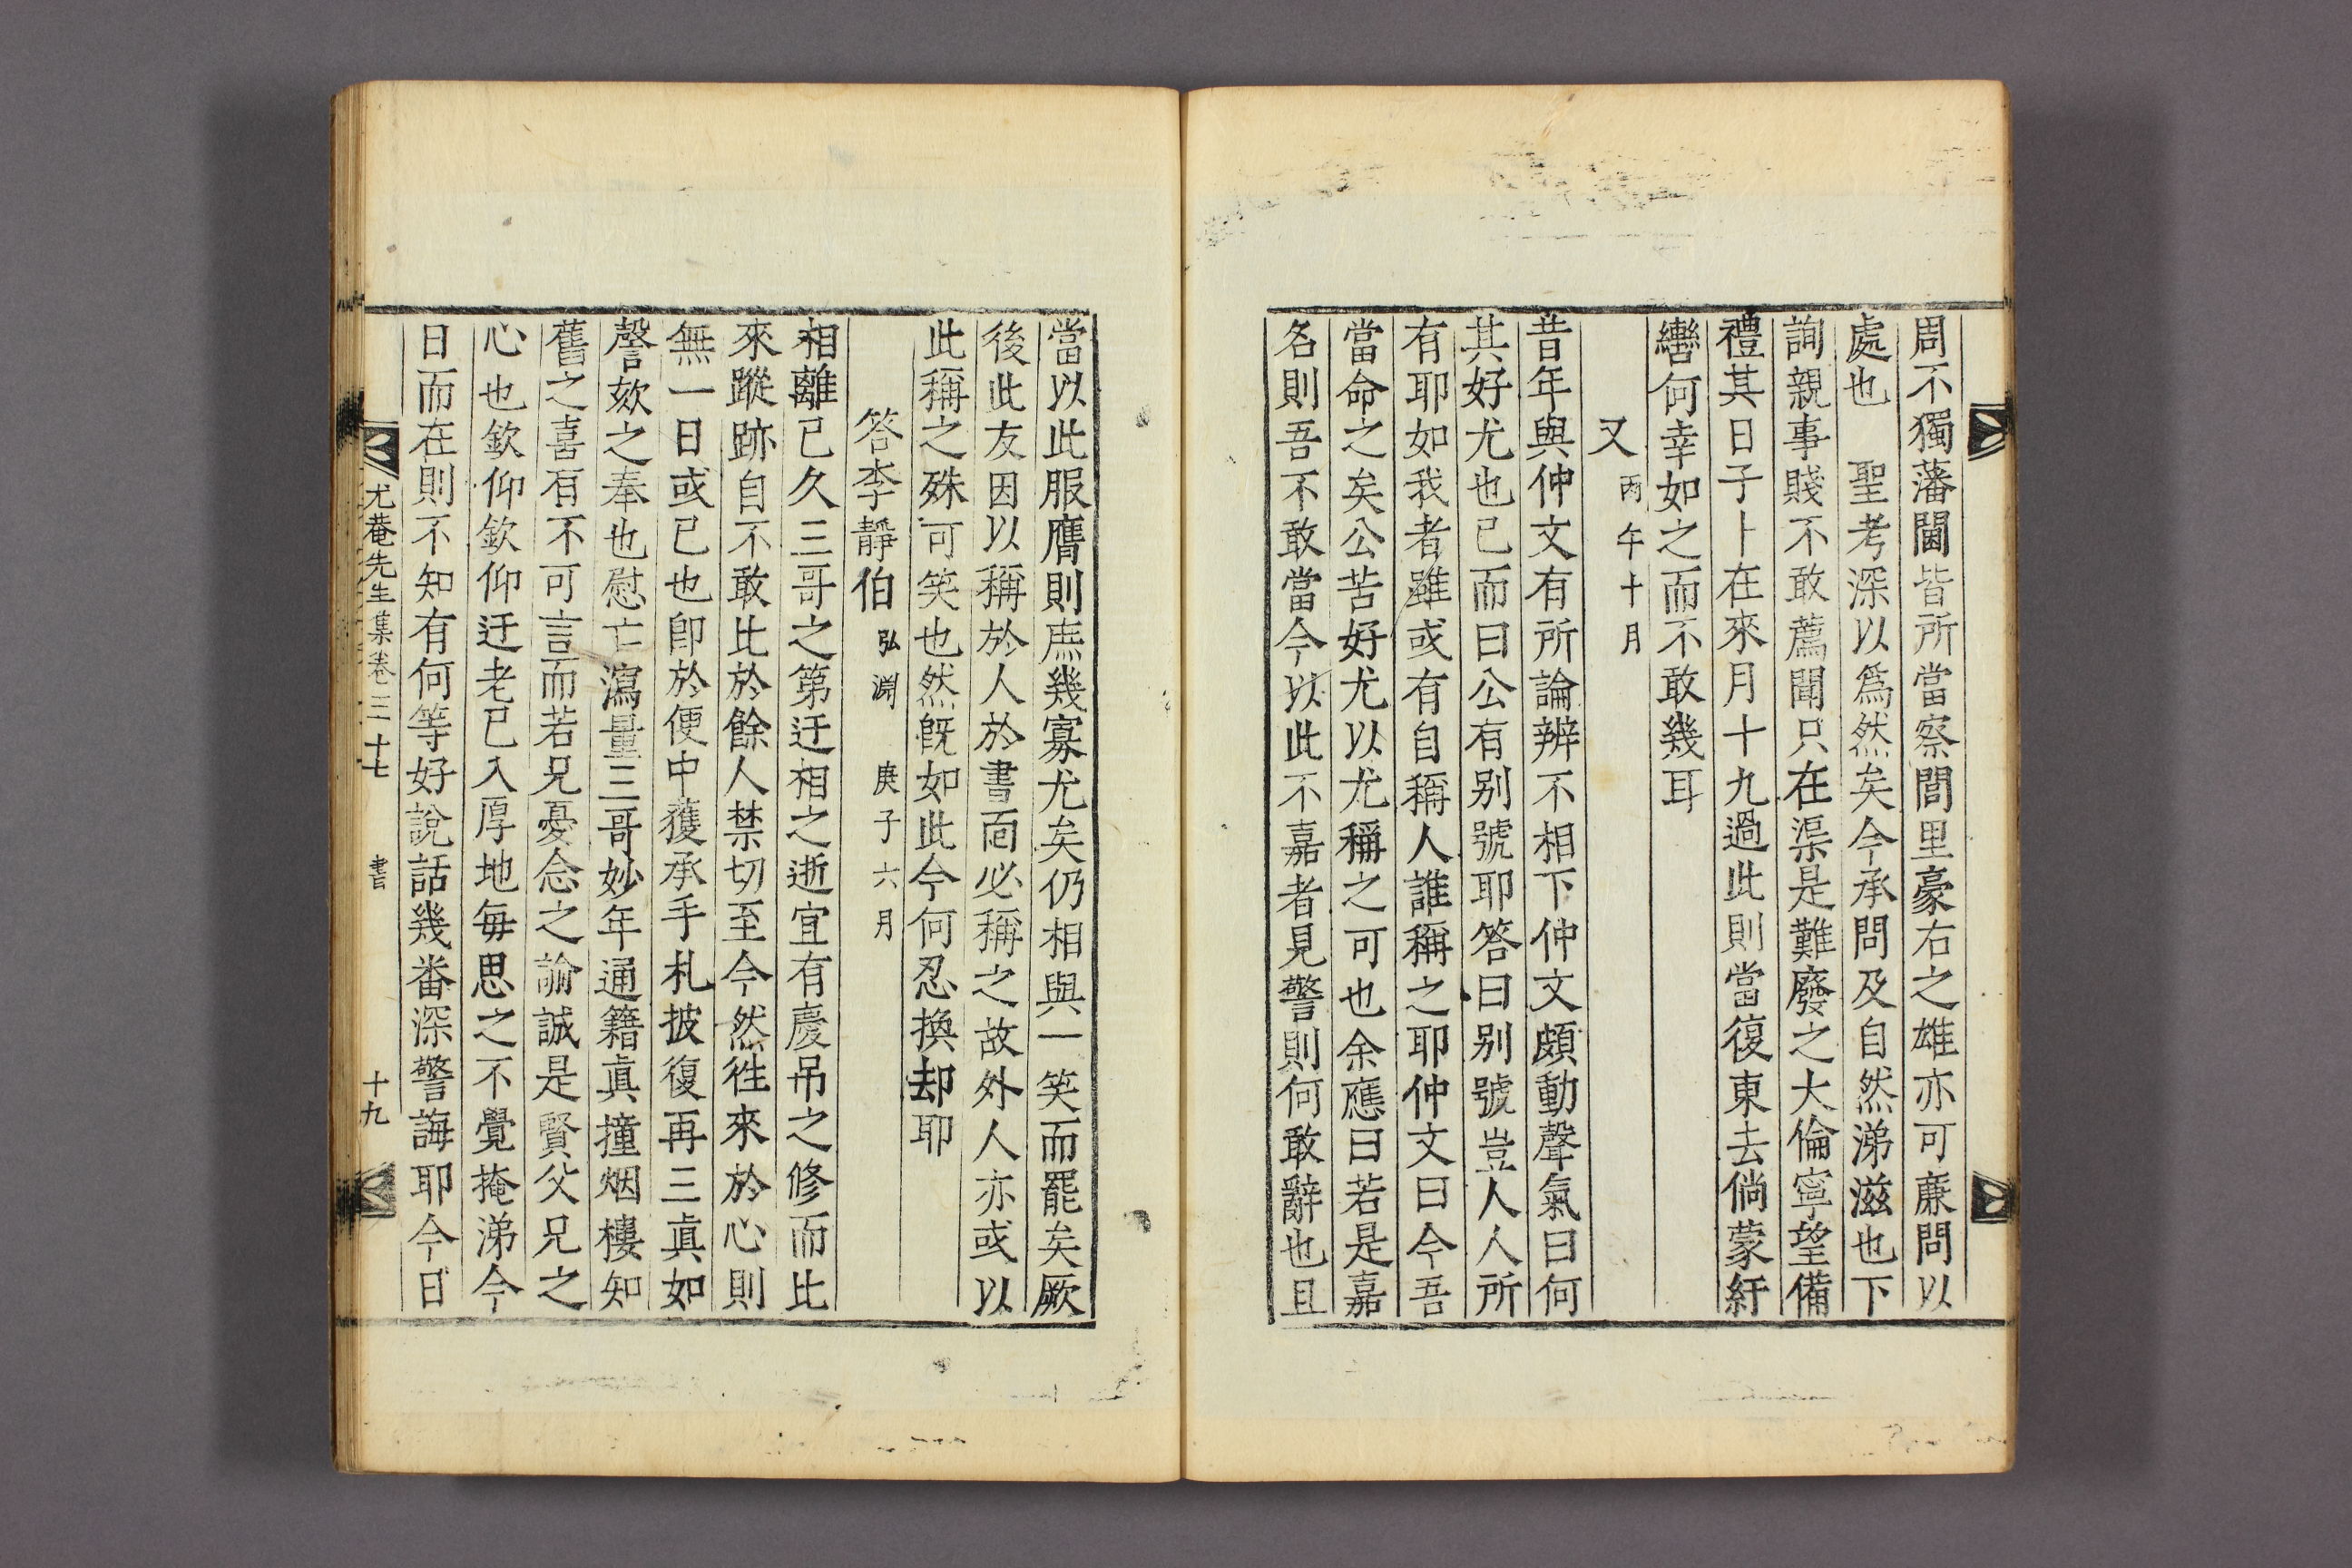 周不獨藩閫皆所當察閭里豪右之雄亦可廉問以
處也　聖考深以爲然矣今承問及自然涕滋也下
詢親事賤不敢薦聞只在渠是難廢之大倫寧望備
禮其日子卜在來月十九過此則當復東去倘蒙紆
轡何幸如之而不敢幾耳
又 丙午十月
昔年與仲文有所論辨不相下仲文頗動聲氣曰何
其好尤也已而曰公有別號耶答曰別號豈人人所
有耶如我者雖或有自稱人誰稱之耶仲文曰今吾
當命之矣公苦好尤以尤稱之可也余應曰若是嘉
名則吾不敢當今以此不嘉者見警則何敢辭也且
當以此服膺則庶幾寡尤矣仍相與一笑而罷矣厥
後此友因以稱於人於書面必稱之故外人亦或以
此稱之殊可笑也然旣如此今何忍換却耶
答李靜伯 弘淵 庚子六月
相離已久三哥之第迂相之逝宜有慶吊之修而比
來蹤跡自不敢比於餘人禁切至今然徃來於心則
無一日或已也卽於便中獲承手札披復再三眞如
謦欬之奉也慰亡瀉量三哥妙年通籍眞撞烟樓知
舊之喜有不可言而若兄憂念之諭誠是賢父兄之
心也欽仰欽仰迂老已入厚地每思之不覺掩涕今
日而在則不知有何等好說話幾番深警誨耶今日
尤菴先生集卷三十七　書　十九